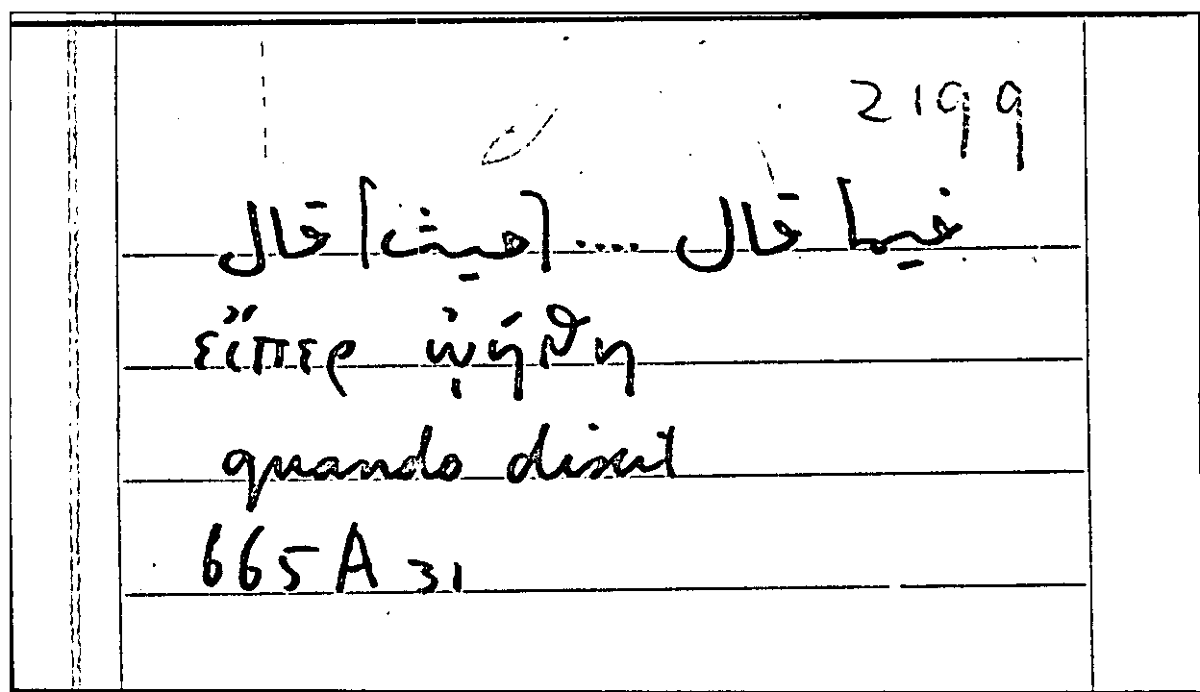 2199
فيما قال .... [حيث] قال
εἴπερ ᾠήθη
quando dixit
665A 31